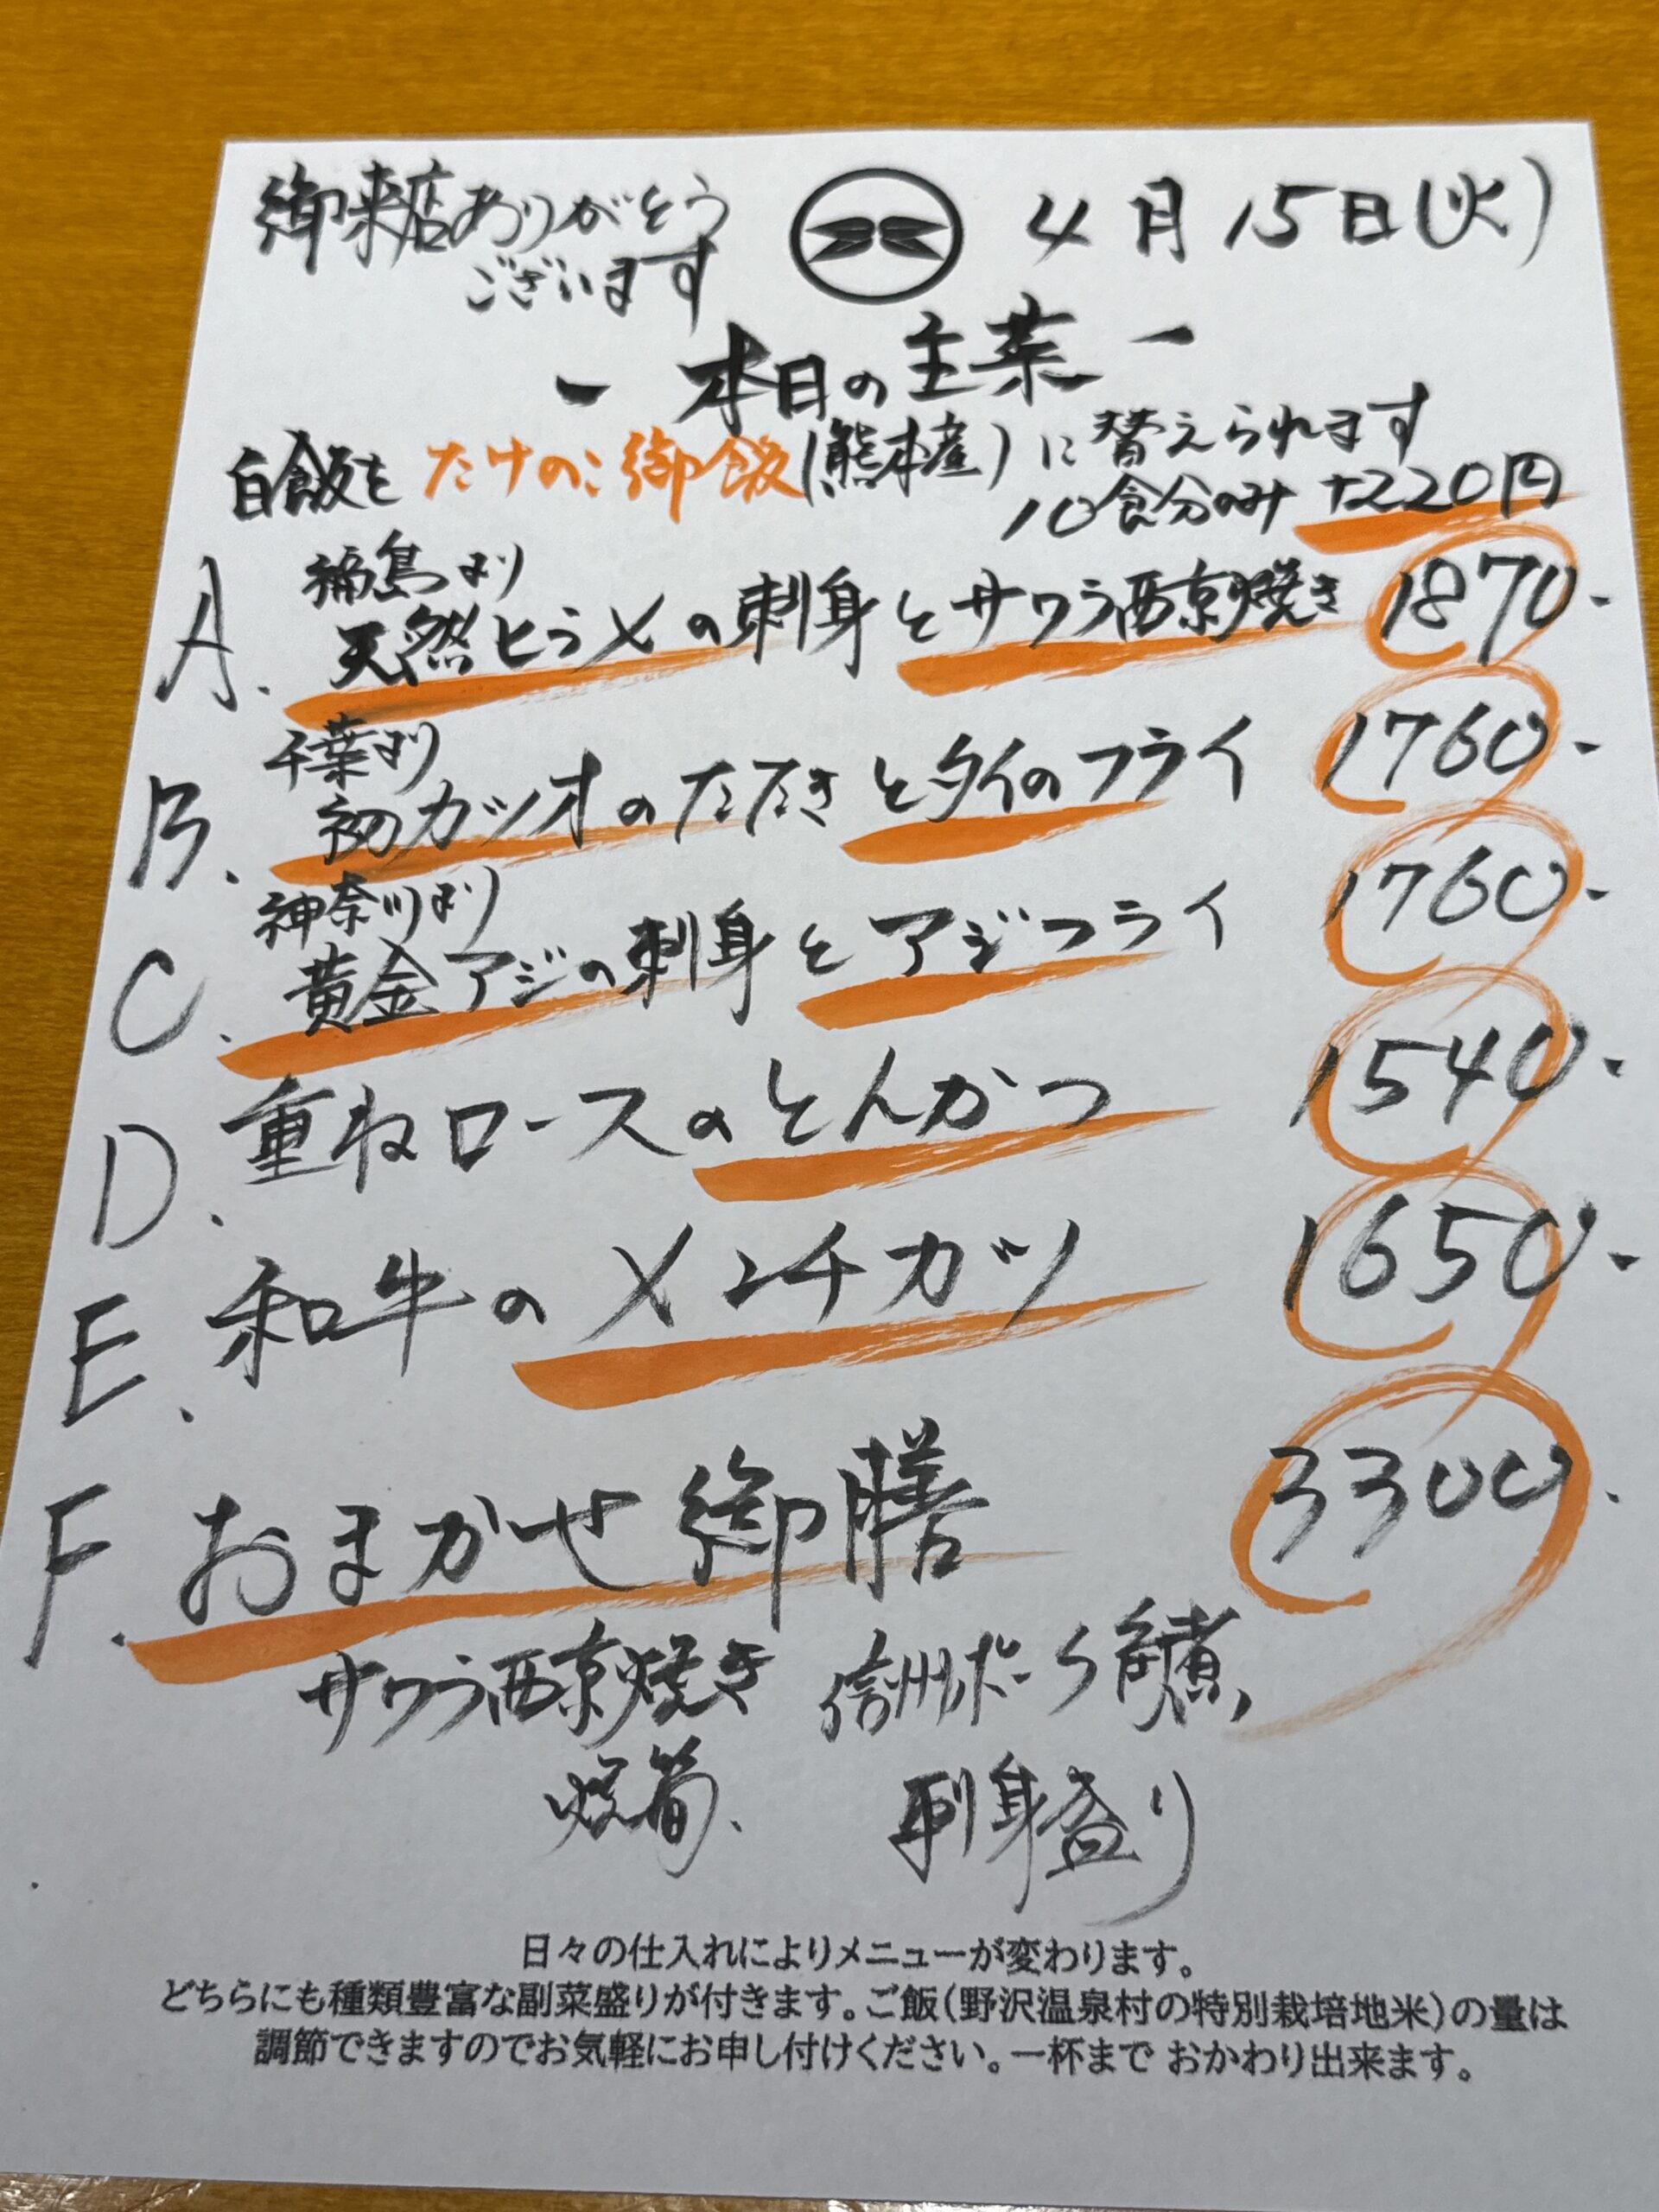 御来店ありがとう
ございます
4月15日(火)
- 本日の主菜 -
白飯をたけのこ御飯(熊本産)に替えられます
10食分のみ +220円
福島より
A. 天然ヒラメの刺身とサワラ西京焼き 1870-
千葉より
B. 初カツオのたたきとタイのフライ 1760-
神奈川より
C. 黄金アジの刺身とアジフライ 1760-
D. 重ねロースのとんかつ 1540-
E. 和牛のメンチカツ 1650-
F. おまかせ御膳 3300.
サワラ西京焼き 信州ポーク角煮、
焼筍、 刺身盛り
日々の仕入れによりメニューが変わります。
どちらにも種類豊富な副菜盛りが付きます。ご飯(野沢温泉村の特別栽培地米)の量は
調節できますのでお気軽にお申し付けください。一杯まで おかわり出来ます。